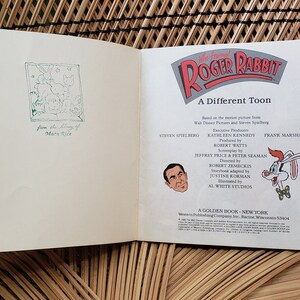 from the library of
Who Framed
ROGER RABBIT
A Different Toon
Based on the motion picture from
Walt Disney Pictures and Steven Spielberg
Executive Producers
STEVEN SPIELBERG KATHLEEN KENNEDY FRANK MARSHALL
Produced by
ROBERT WATTS
Screenplay by
JEFFREY PRICE & PETER SEAMAN
Directed by
ROBERT ZEMECKIS
Storybook adapted by
JUSTINE KORMAN
Illustrated by
AL WHITE STUDIOS
A GOLDEN BOOK · NEW YORK
Western Publishing Company, Inc., Racine, Wisconsin 53404